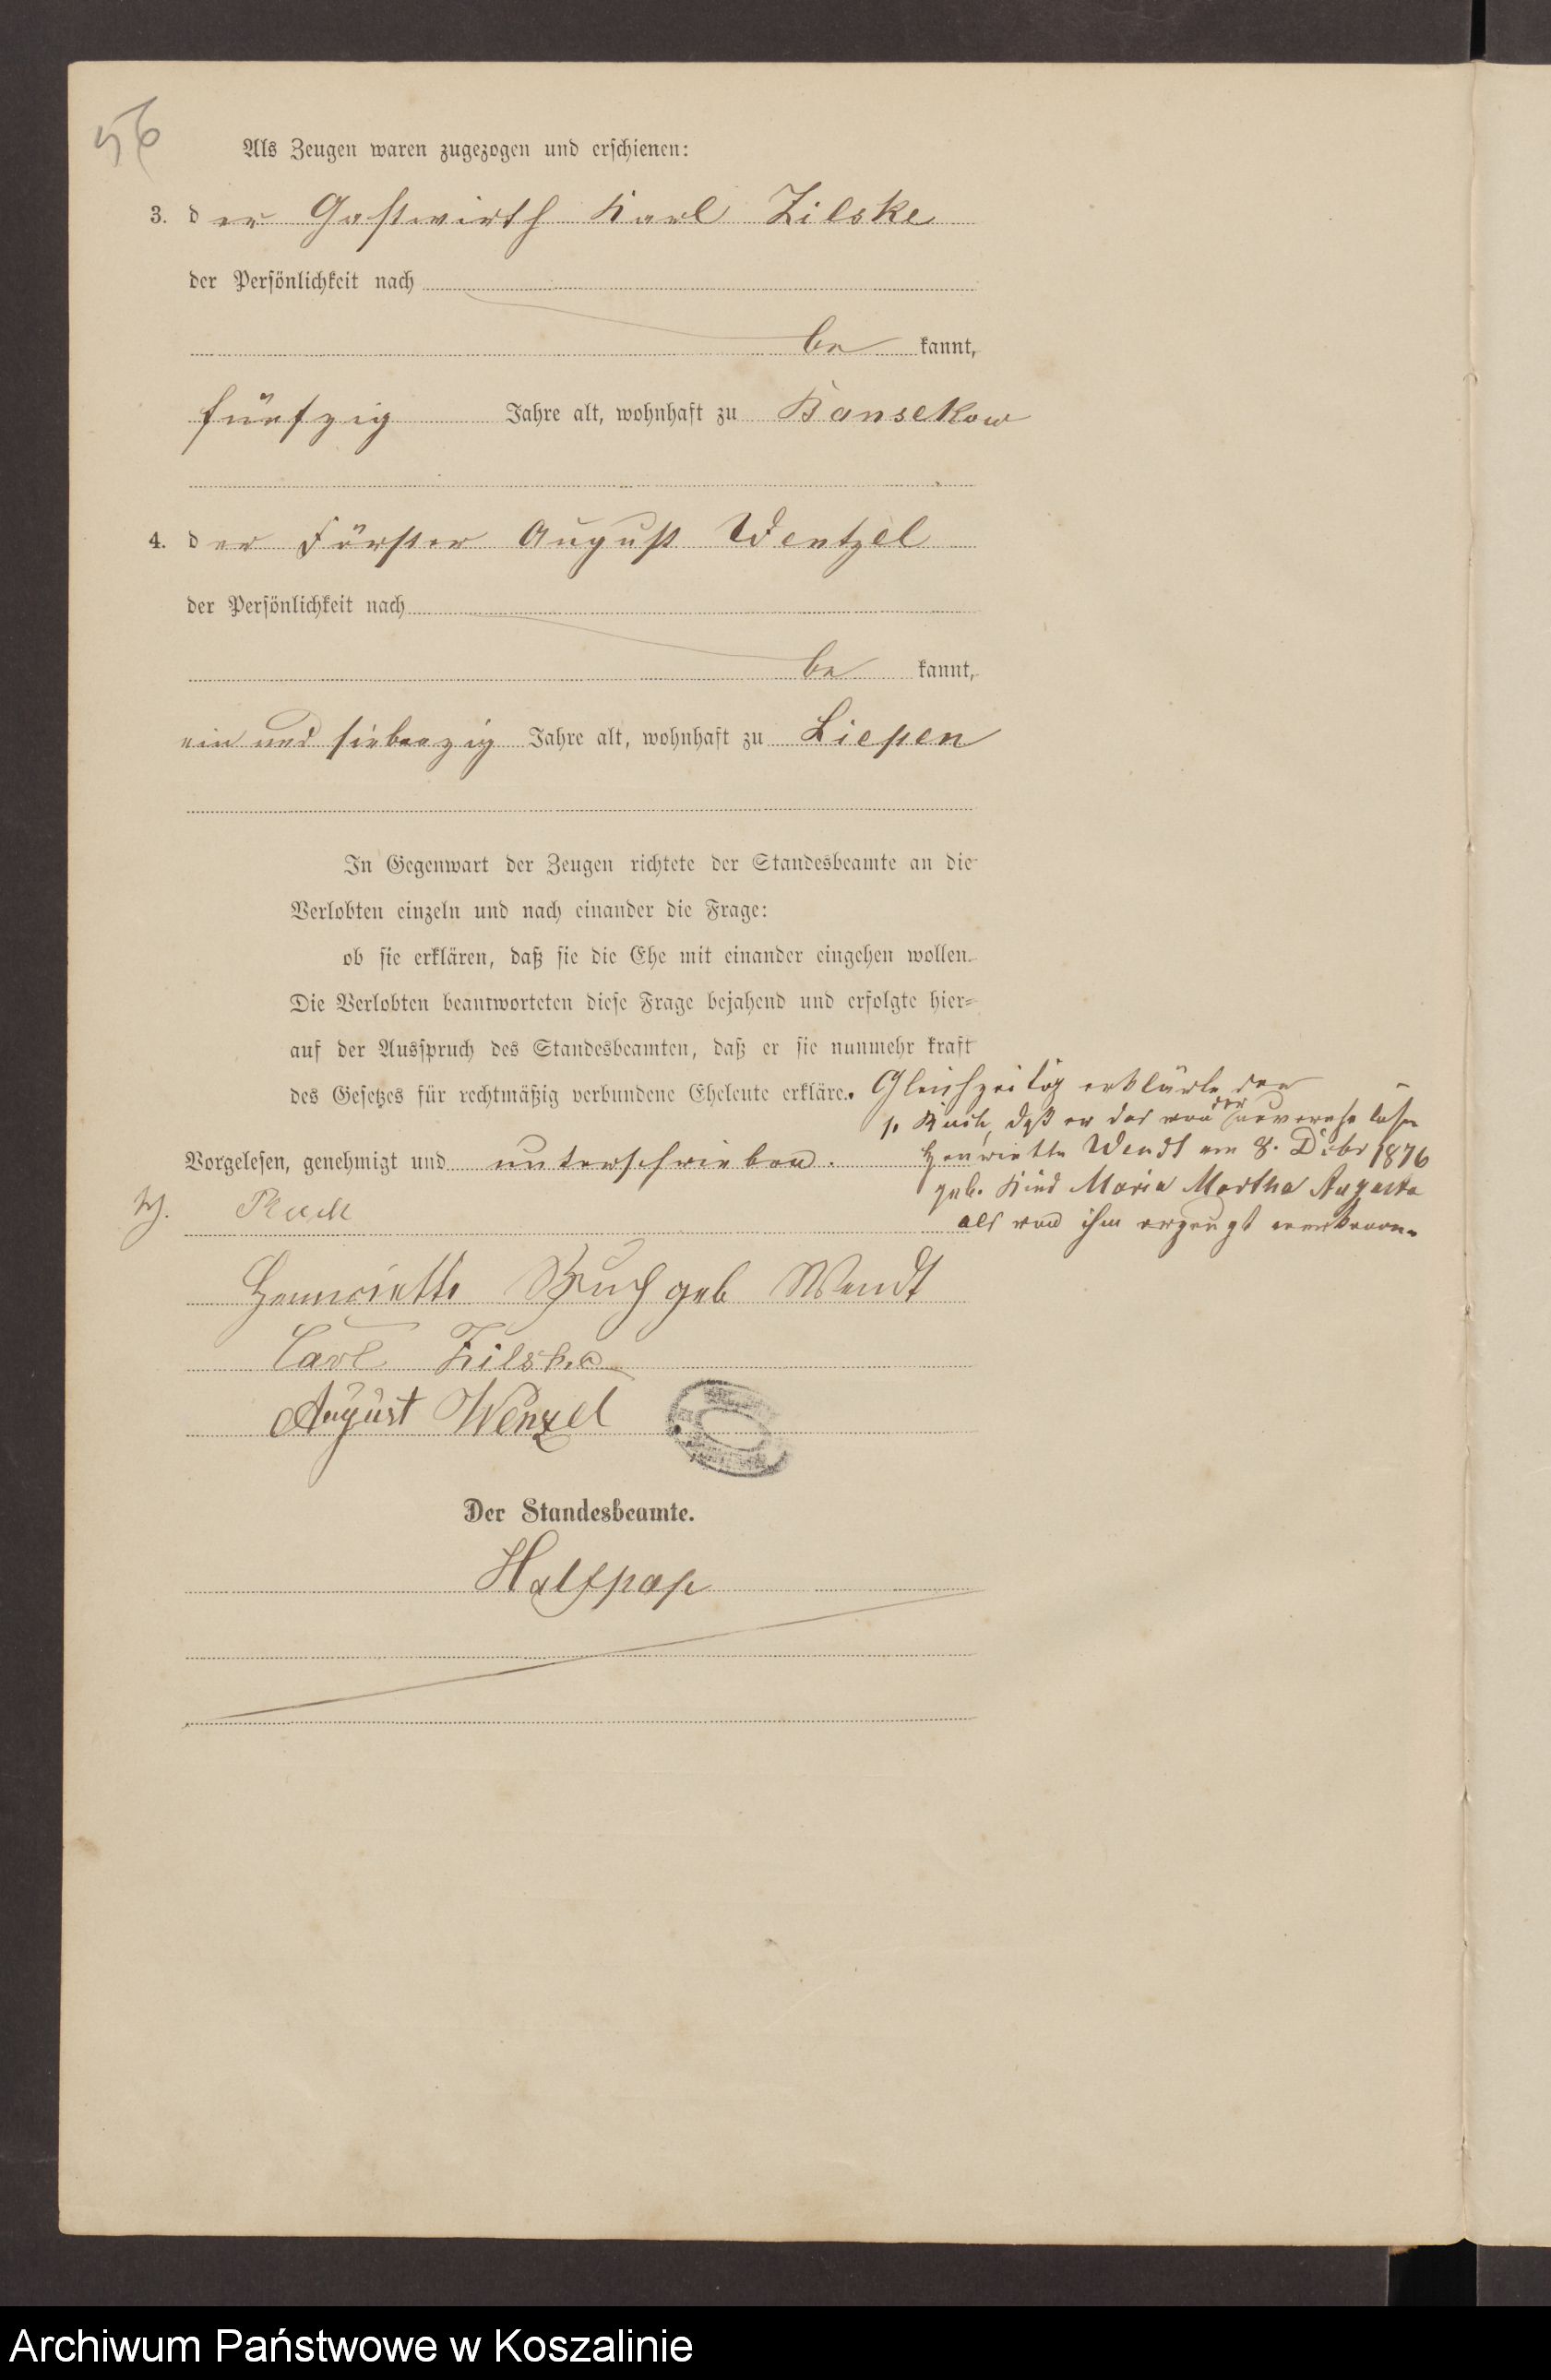 56
Als Zeugen waren zugezogen und erschienen:
3. der Gastwirth Karl Zilske
der Persönlichkeit nach
be kannt,
fünfzig Jahre alt, wohnhaft zu Bansekow
4. der Förster August Wentzel
der Persönlichkeit nach
be kannt,
ein und siebenzig Jahre alt, wohnhaft zu Liepen
In Gegenwart der Zeugen richtete der Standesbeamte an die
Verlobten einzeln und nach einander die Frage:
ob sie erklären, daß sie die Ehe mit einander eingehen wollen.
Die Verlobten beantworteten diese Frage bejahend und erfolgte hier-
auf der Ausspruch des Standesbeamten, daß er sie nunmehr kraft
des Gesetzes für rechtmäßig verbundene Eheleute erkläre. Gleichzeitig erklärte der
p. daß er das von der unverehelichten
Henriette Wendt am 8. Dcbr 1876
geb. Kind Maria Martha Augusta
als von ihm erzeugt anerkenne.
Vorgelesen, genehmigt und unterschrieben.
Henriette geb Wendt
Carl Zilske
August Wenzel
Der Standesbeamte.
Halfpap
Archiwum Państwowe w Koszalinie